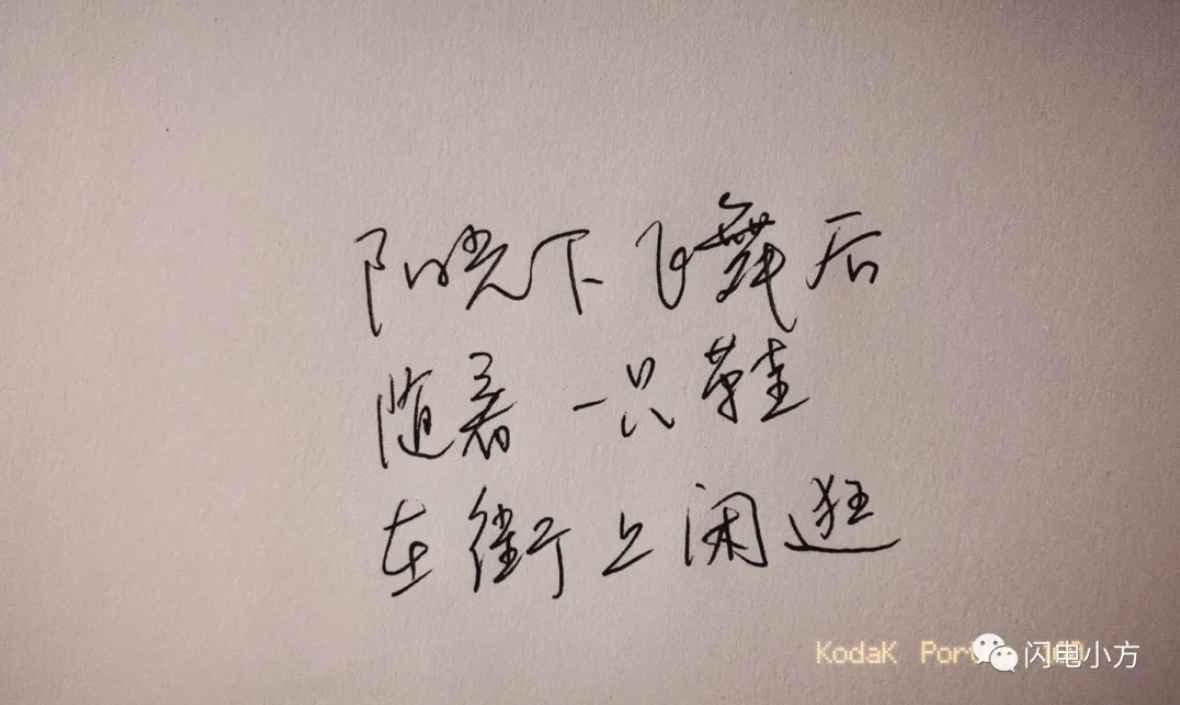 阳光下飞舞后
随着一只鞋
在街上闲逛
KodaK Por
闪电小方